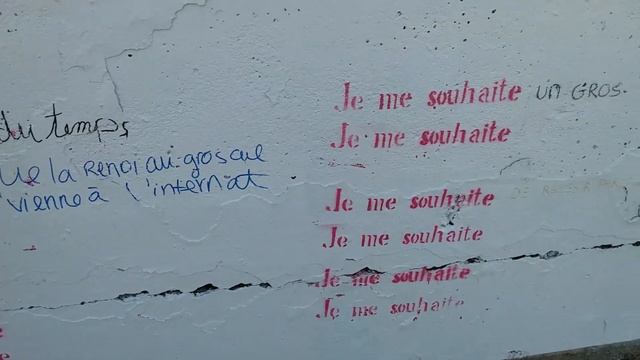 du temps
Que la Renoi au gros cul
vienne à l'internat
Je me souhaite un GROS.
Je me souhaite
Je me souhaite
Je me souhaite
Je me souhaite
Je me souhaite